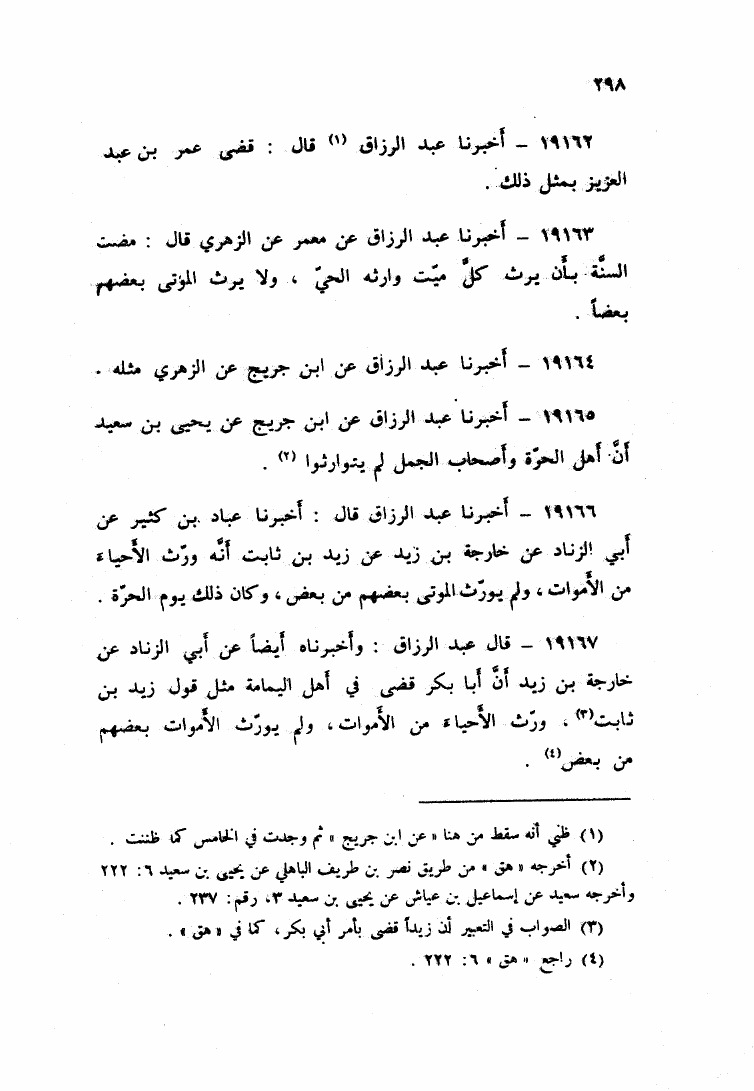 ٢٩٨
١٩١٦٢ – أخبرنا عبد الرزاق (١) قال : قضى عمر بن عبد
العزيز بمثل ذلك .
١٩١٦٣ – أخبرنا عبد الرزاق عن معمر عن الزهري قال : مضت
السنَّة بأَن يرث كلَّ ميّت وارثه الحيّ ، ولا يرث الموتى بعضهم
بعضاً .
١٩١٦٤ – أخبرنا عبد الرزاق عن ابن جريج عن الزهري مثله .
١٩١٦٥ – أخبرنا عبد الرزاق عن ابن جريج عن يحيى بن سعيد
أَنَّ أهل الحرّة وأصحاب الجمل لم يتوارثوا (٢) .
١٩١٦٦ – أخبرنا عبد الرزاق قال : أخبرنا عباد بن كثير عن
أبي الزناد عن خارجة بن زيد عن زيد بن ثابت أَنَّه ورّث الأَحياء
من الأَموات ، ولم يورّث الموتى بعضهم من بعض ، وكان ذلك يوم الحرّة .
١٩١٦٧ – قال عبد الرزاق : وأخبرناه أيضاً عن أبي الزناد عن
خارجة بن زيد أَنَّ أبا بكر قضى في أهل اليمامة مثل قول زيد بن
ثابت(٣) ، ورّث الأَحياء من الأَموات ، ولم يورّث الأَموات بعضهم
من بعض(٤) .
(١) ظني أنه سقط من هنا « عن ابن جريج » ثم وجدت في الخامس كما ظننت .
(٢) أخرجه « هق » من طريق نصر بن طريف الباهلي عن يحيى بن سعيد ٦: ٢٢٢
وأخرجه سعيد عن إسماعيل بن عياش عن يحيى بن سعيد ٣، رقم: ٢٣٧ .
(٣) الصواب في التعبير أن زيداً قضى بأمر أبي بكر ، كما في « هق » .
(٤) راجع « هق » ٦: ٢٢٢ .